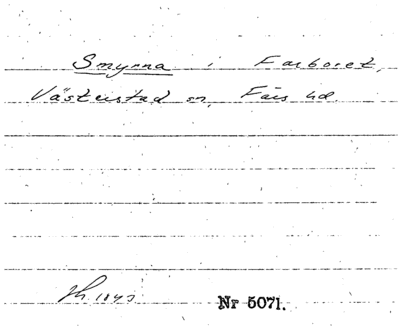 Smyrna i Farboret,
Västerstad sn, Färs hd.
Nr 5071.